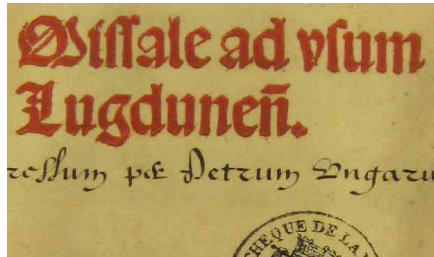 Missale ad vsum
Lugdunen̄.
ressum per Petrum Ungaru
HEQUE DE LA